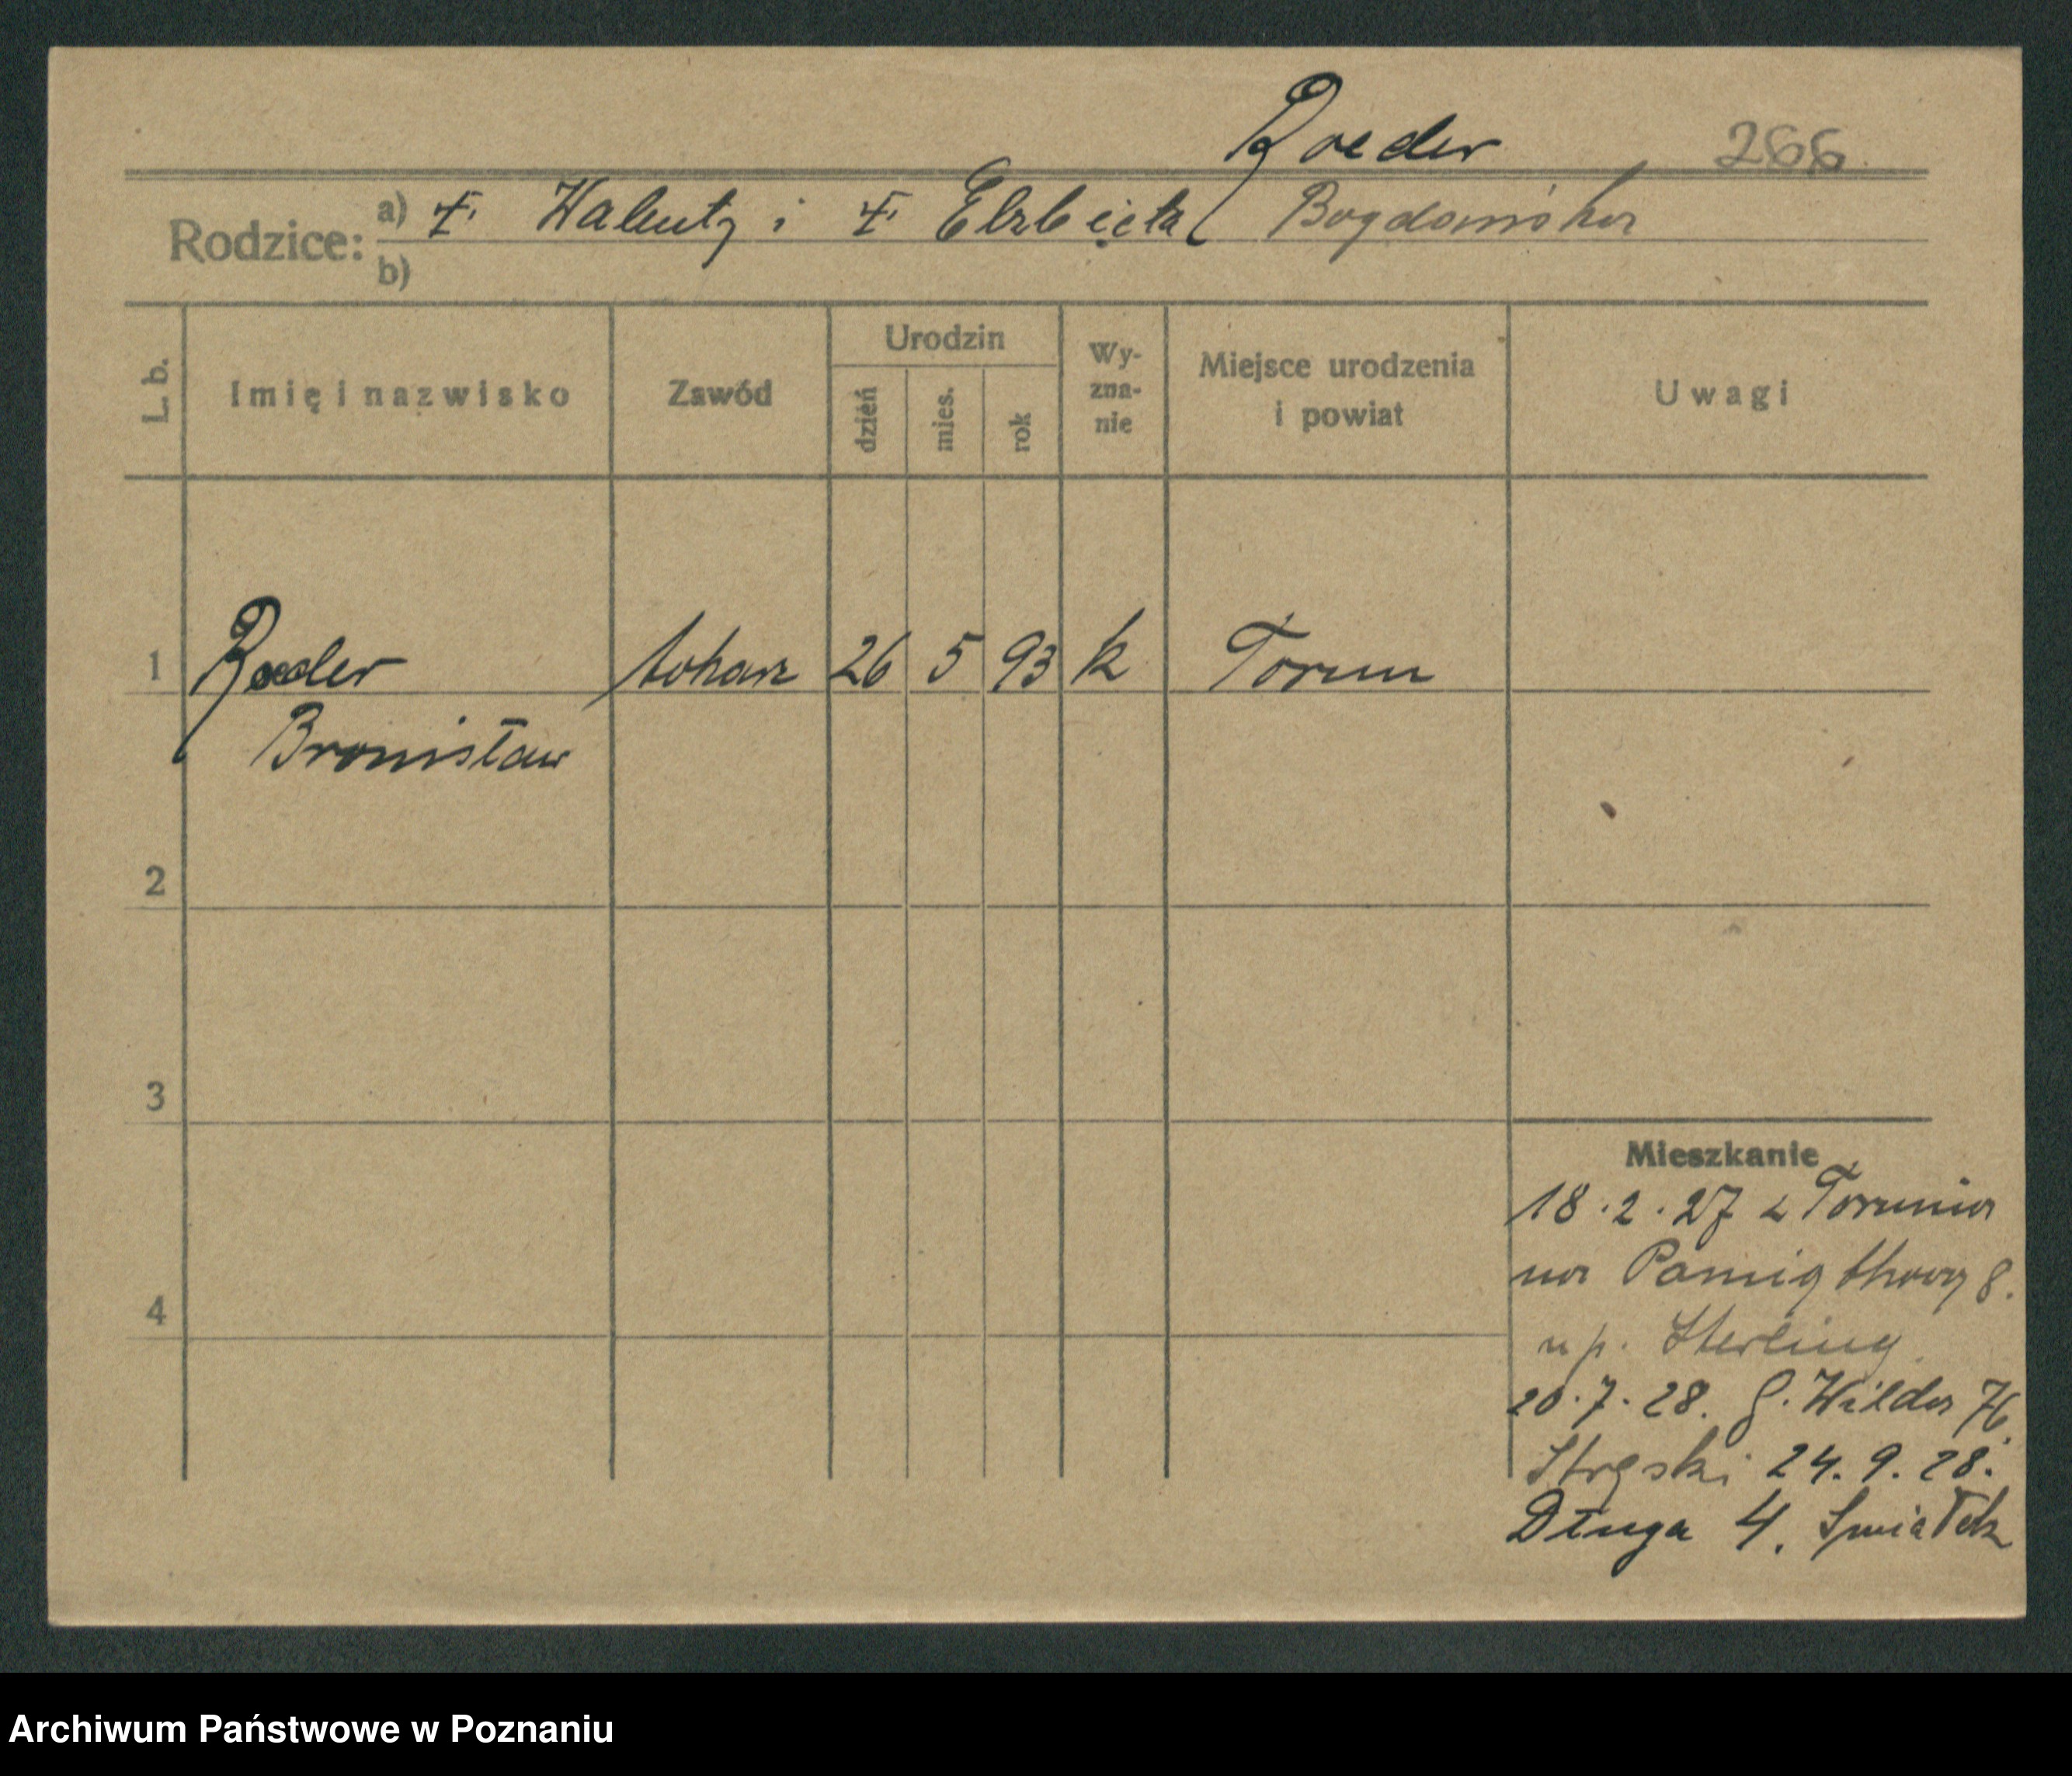 Roeder 266
Rodzice: a) ♰ Walenty i ♰ Elżbieta Bogdańska
b)
L. b. Imię i nazwisko Zawód Urodzin dzień mies. rok Wy-zna-nie Miejsce urodzenia i powiat Uwagi
1 Roeder tokarz 26 5 93 k Toruń
Bronisław
2
3
Mieszkanie
18.2.27 z Torunia
na Pamiątkową 8.
4
u p. Sterling
20.7.28. G. Wilda 76
24.9.28.
Długa 4.
Archiwum Państwowe w Poznaniu